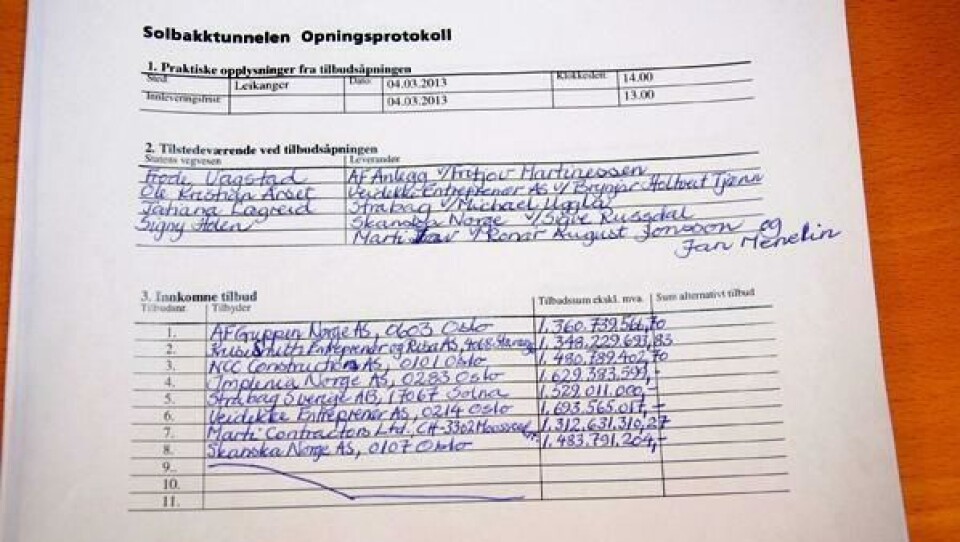 Solbakktunnelen Opningsprotokoll
1. Praktiske opplysninger fra tilbudsåpningen
Sted Leikanger Dato 04.03.2013 Klokkeslett 14.00
Innleveringsfrist 04.03.2013 13.00
2. Tilstedeværende ved tilbudsåpningen
Statens vegvesen Leverandør
Frode Vagstad AF Anlegg v/Fritjov Martinessen
Ole Kristian Årset Veidekke Entreprenør AS v/ Brynjar Holtveit Tjønn
Tatiana Lagreid Strabag v/Michael Uggla
Signy Hden Skanska Norge v/Sigve Russdal
Marti v/Ronar August Jonsson og
Jan Menelin
3. Innkomne tilbud
Tilbudsnr Tilbyder Tilbudssum ekskl. mva. Sum alternativt tilbud
1. AF Gruppen Norge AS, 0603 Oslo 1.360.739.566,70
2. Kruse Smith Entreprenør og Risa AS, 4068 1.348.229.697,83
3. NCC Construction AS, 0101 Oslo 1.480.789.402,70
4. Implenia Norge AS, 0283 Oslo 1.629.383.599,-
5. Strabag Sverige AB, 17067 Solna 1.529.011.000,-
6. Veidekke Entreprenør AS, 0214 Oslo 1.693.565.017,-
7. Marti Contractors Ltd, CH-3302 1.312.631.310,27
8. Skanska Norge AS, 0107 Oslo 1.483.791.204,-
9.
10.
11.